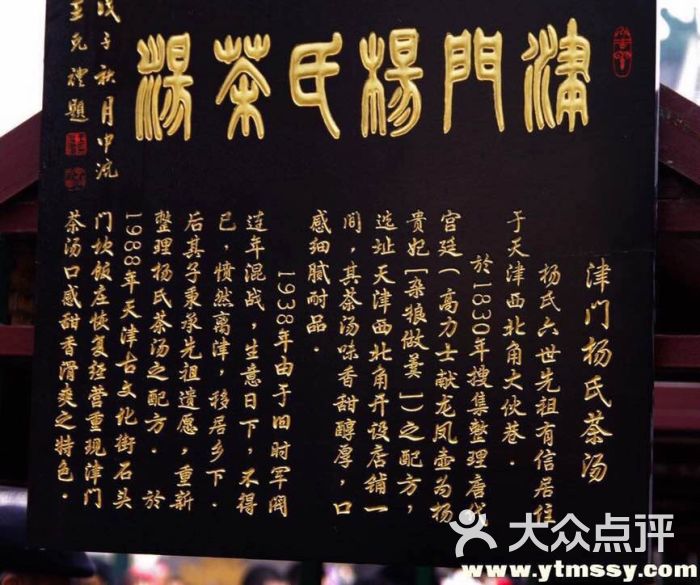 津門楊氏茶湯
戊子秋月中流
王允禮題
津门杨氏茶汤
杨氏六世先祖有信居住
于天津西北角大伙巷.
於1830年搜集整理唐代
宫廷(高力士献龙凤壶为杨
贵妃[杂粮做羹])之配方,
选址天津西北角开设店铺一
间,其茶汤味香甜醇厚,口
感细腻耐品.
1938年由于旧时军阀
连年混战,生意日下,不得
已,愤然离津,移居乡下.
后其子秉承先祖遗愿,重新
整理杨氏茶汤之配方.於
1988年天津古文化街石头
门坎饭庄恢复经营重现津门
茶汤口感甜香滑爽之特色.
大众点评
www.ytmssy.com